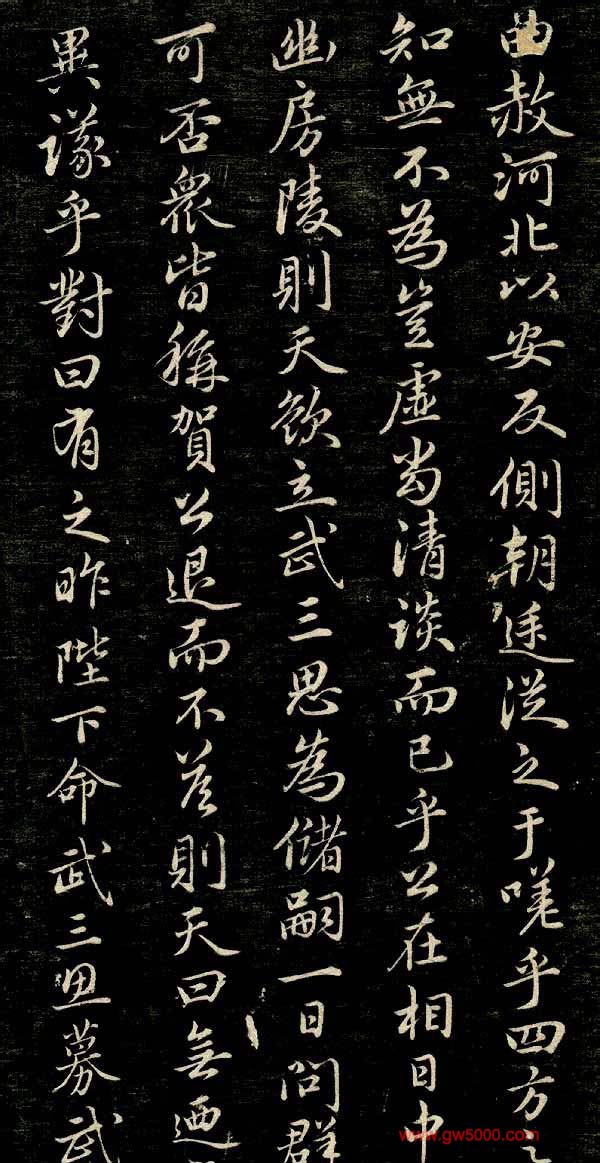 曲赦河北以安反側朝廷從之于嗟乎四方之
知無不為豈虛尚清談而已乎公在相日中
幽房陵則天欲立武三思為儲嗣一日問群
可否衆皆稱賀公退而不荅則天曰無廼
異議乎對曰有之昨陛下命武三思募武
www.gw5000.com